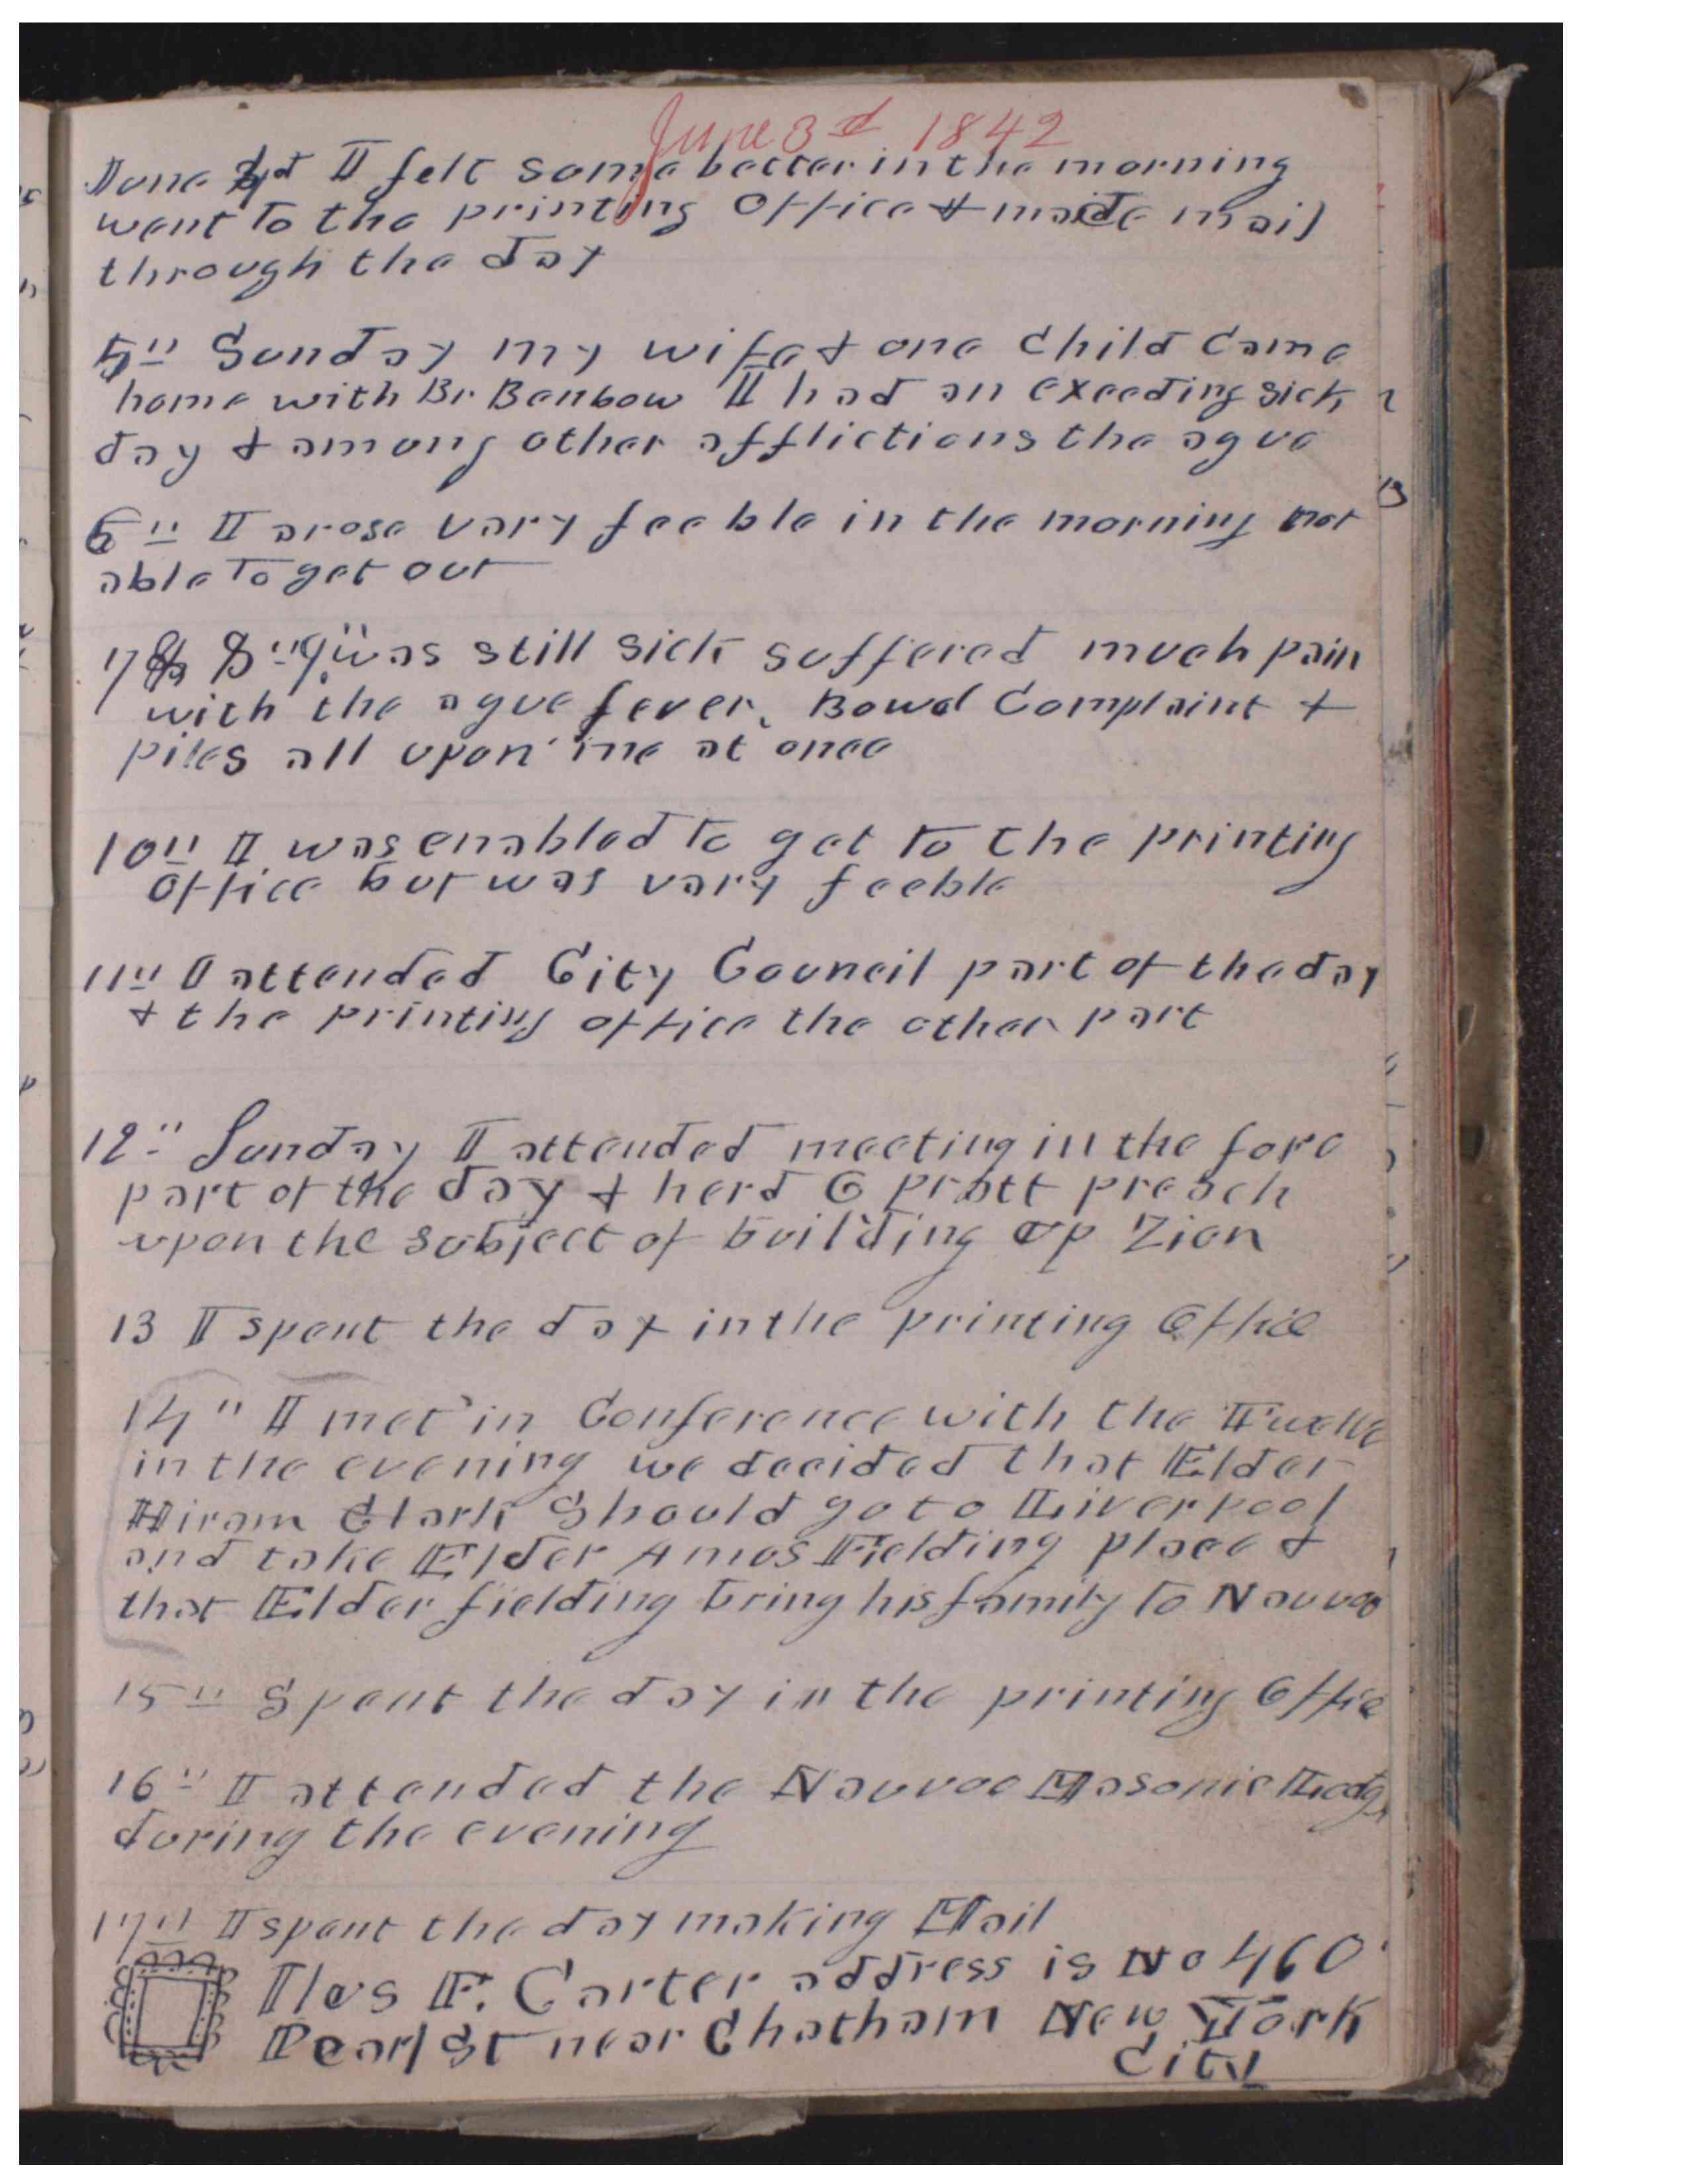 June 3d 1842
June 4th I felt some better in the morning
went to the printing Office & made mail
through the day
5th Sunday my wife & one child came
home with Br. Benbow I had an exeeding sick
day & among other afflictions the ague
6th I arose vary feeble in the morning not
able to get out
7 8th 9th was still sick suffered much pain
with the ague fever, Bowel Complaint &
piles all upon me at once
10th I was enabled to get to the printing
office but was vary feeble
11th I attended City Council part of the day
& the printing office the other part
12th Sunday I attended meeting in the fore
part of the day & herd O pratt preach
upon the subject of building up Zion
13 I spent the day in the printing Office
14th I met in Conference with the Twelve
in the evening we decided that Elder
Hiram Clark Should go to Liverpool
and take Elder Amos Fielding place &
that Elder fielding bring his family to Nauvoo
15th Spent the day in the printing Office
16th I attended the Nauvoo Masonic Lodge
during the evening
17th I spent the day making Mail
F. Carter address is No 460
Pearl St near Chatham New York
City